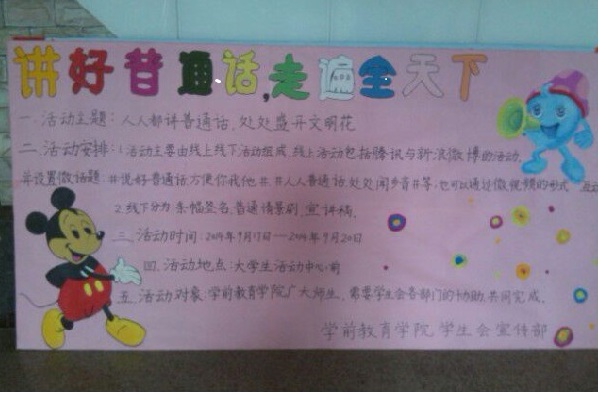 讲好普通话,走遍全天下
一.活动主题:人人都讲普通话,处处盛开文明花
二.活动安排:1.活动主要由线上线下活动组成,线上活动包括腾讯与新浪微博的活动,
并设置微话题:#说好普通话方便你我他##人人普通话,处处闻乡音#等,也可以通过微视频的形式 互动
2.线下分为条幅签名,普通情景剧,宣讲稿,
三.活动时间:2014年9月17日—2014年9月20日
四.活动地点:大学生活动中心前
五.活动对象:学前教育学院广大师生,需要学生会各部门的协助,共同完成.
学前教育学院学生会宣传部